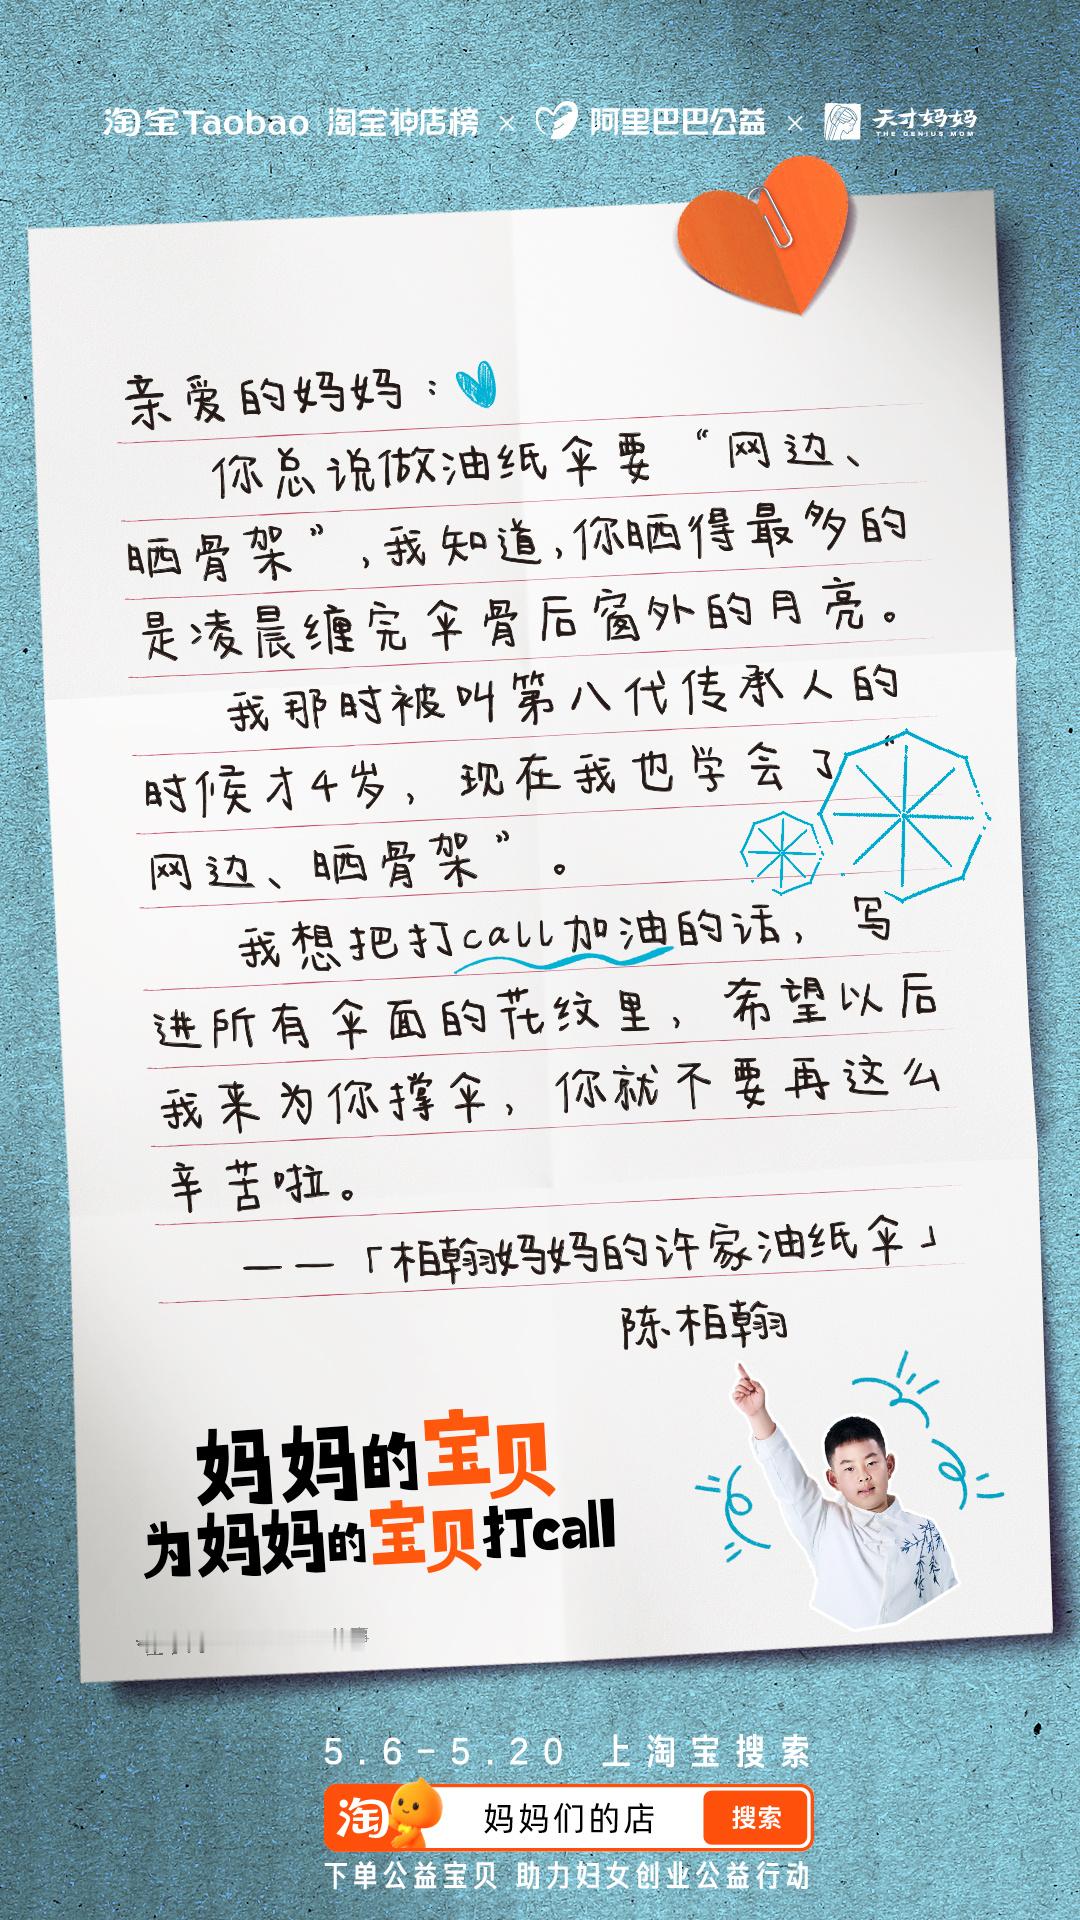 淘宝Taobao 淘宝神店榜 × 阿里巴巴公益 × 天才妈妈
THE GENIUS MOM
亲爱的妈妈：
你总说做油纸伞要“网边、
晒骨架”,我知道,你晒得最多的
是凌晨缠完伞骨后窗外的月亮。
我那时被叫第八代传承人的
时候才4岁，现在我也学会了“
网边、晒骨架”。
我想把打call加油的话，写
进所有伞面的花纹里，希望以后
我来为你撑伞，你就不要再这么
辛苦啦。
——「柏翰妈妈的许家油纸伞」
陈柏翰
妈妈的宝贝
为妈妈的宝贝打call
5.6-5.20 上淘宝搜索
淘 妈妈们的店 搜索
下单公益宝贝 助力妇女创业公益行动